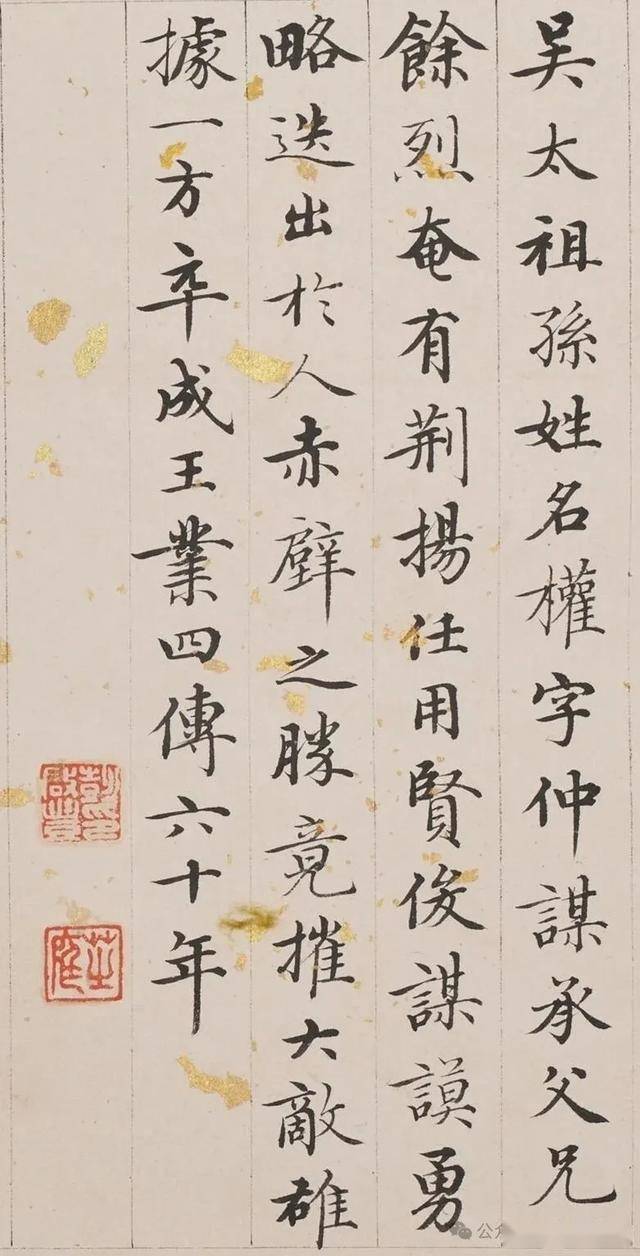 吴太祖孫姓名權字仲謀承父兄
餘烈奄有荆揚任用賢俊謀謨勇
略迭出於人赤壁之勝竟摧大敵雄
據一方卒成王業四傳六十年
公众